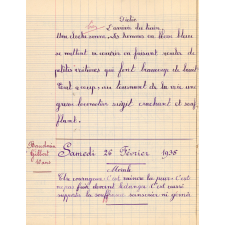 Dictée
L'arrivée du train
Une cloche sonne. Les hommes en blouse bleue
se mettent à courir en faisant rouler de
petites voitures qui font beaucoup de bruit
Tout à coup, au tournant de la voie une
grosse locomotive surgit crachant et souf
flant.
Baudouin
Gilbert
Samedi 26 Février 1938
Morale
Le courageux : C'est vaincre la peur. C'est
le danger. C'est aussi
supporter la souffrance sans gémir